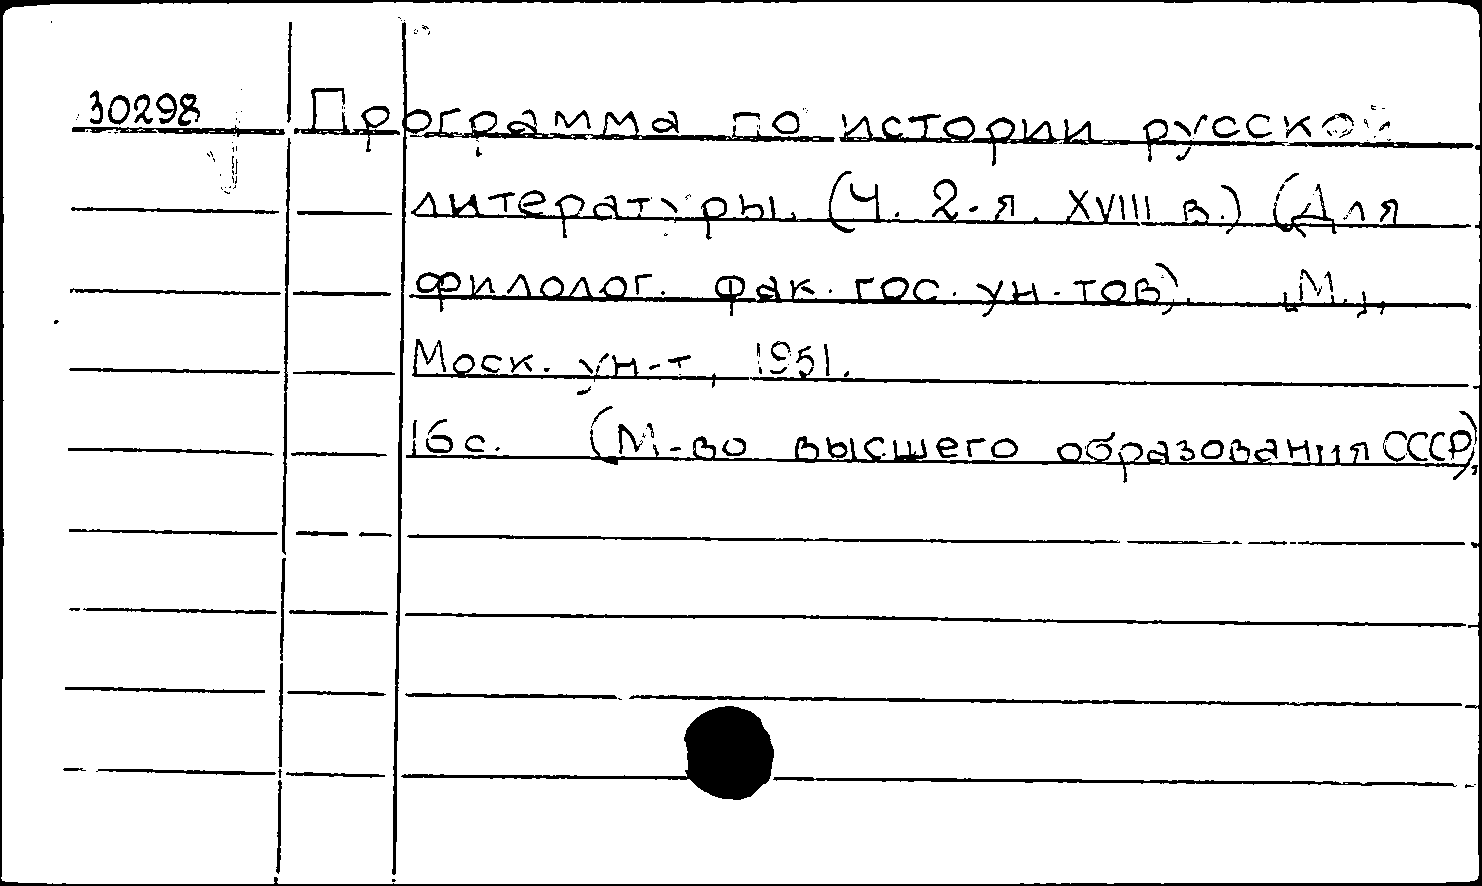 30298 Программа по истории русской
литературы. (Ч. 2-я. XVIII в.) (Для
филолог. фак. гос. ун-тов). [М.],
Моск. ун-т, 1951.
16 с. (М-во высшего образования СССР).